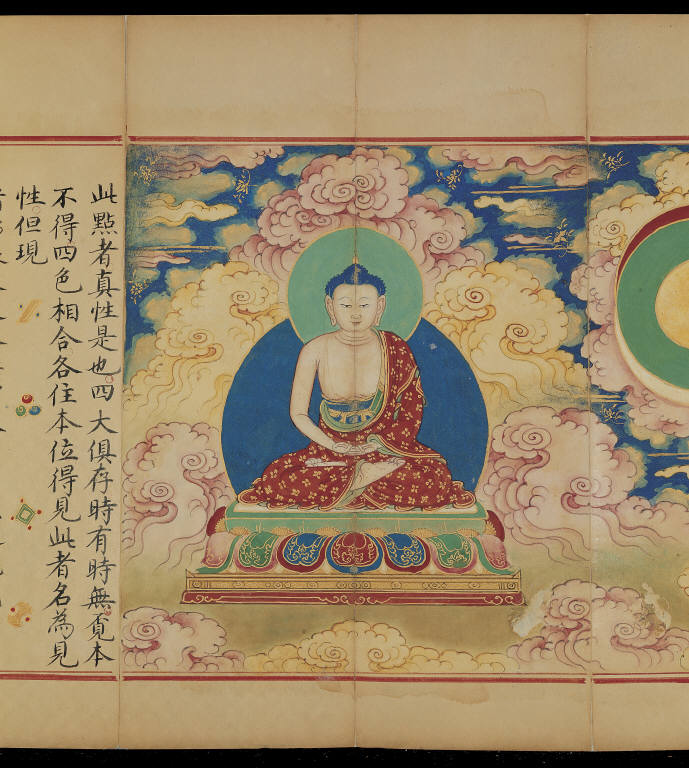 此㸃者真性是也四大俱存時有時無覓本
不得四色相合各住本位得見此者名為見
性但現